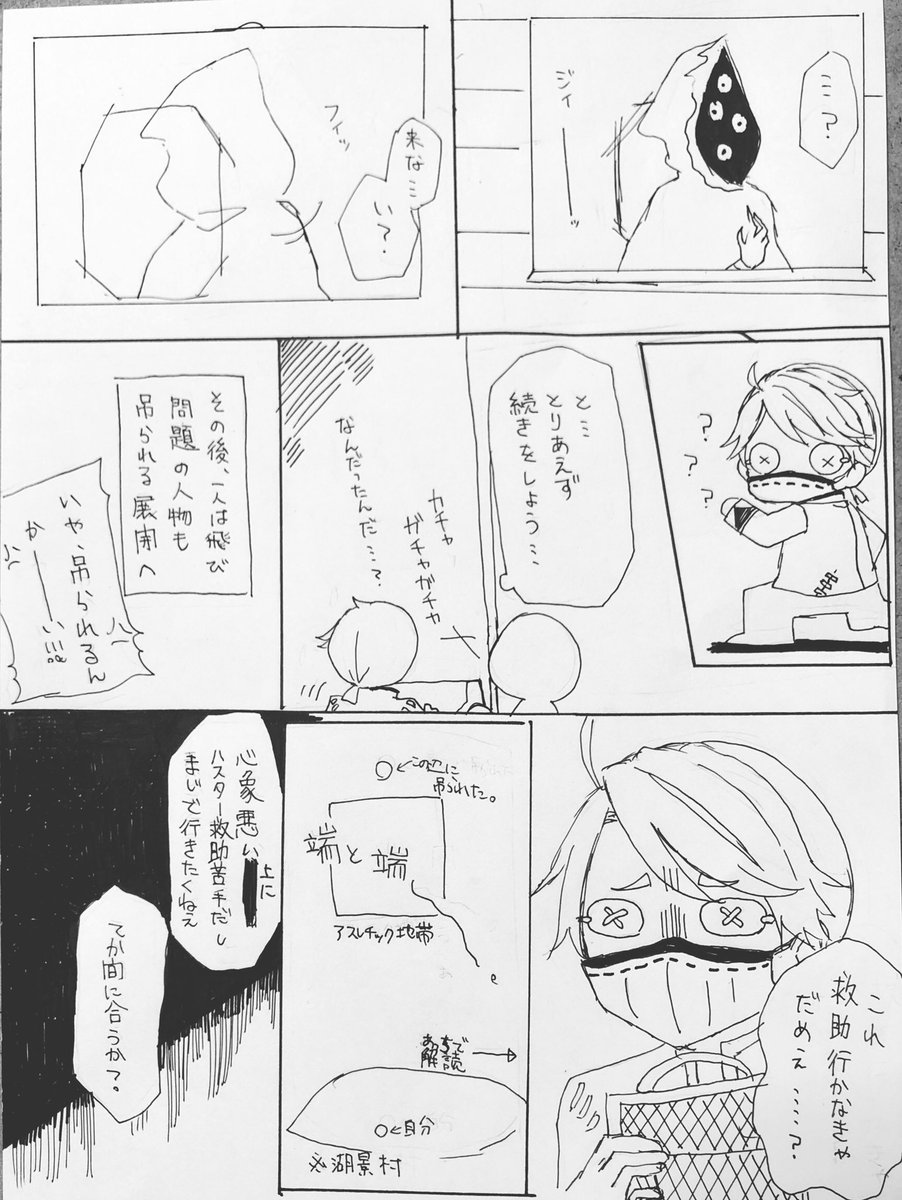 …?
ジィーーッ
来な…
い?
フィッ
?
?
?
と…
とりあえず
続きをしよう…
カチャ
ガチャガチャ
なんだったんだ…?
その後、一人は飛び
問題の人物も
吊られる展開へ
いや、吊られるん
かーーい!!!
これ
救助行かなきゃ
だめぇ……?
←この辺に
吊られた。
端と端
アスレチック地帯
あっちで
解読
←自分
※湖景村
心象悪い上に
ハスター救助苦手だし
まじで行きたくねぇ
てか間に合うか?